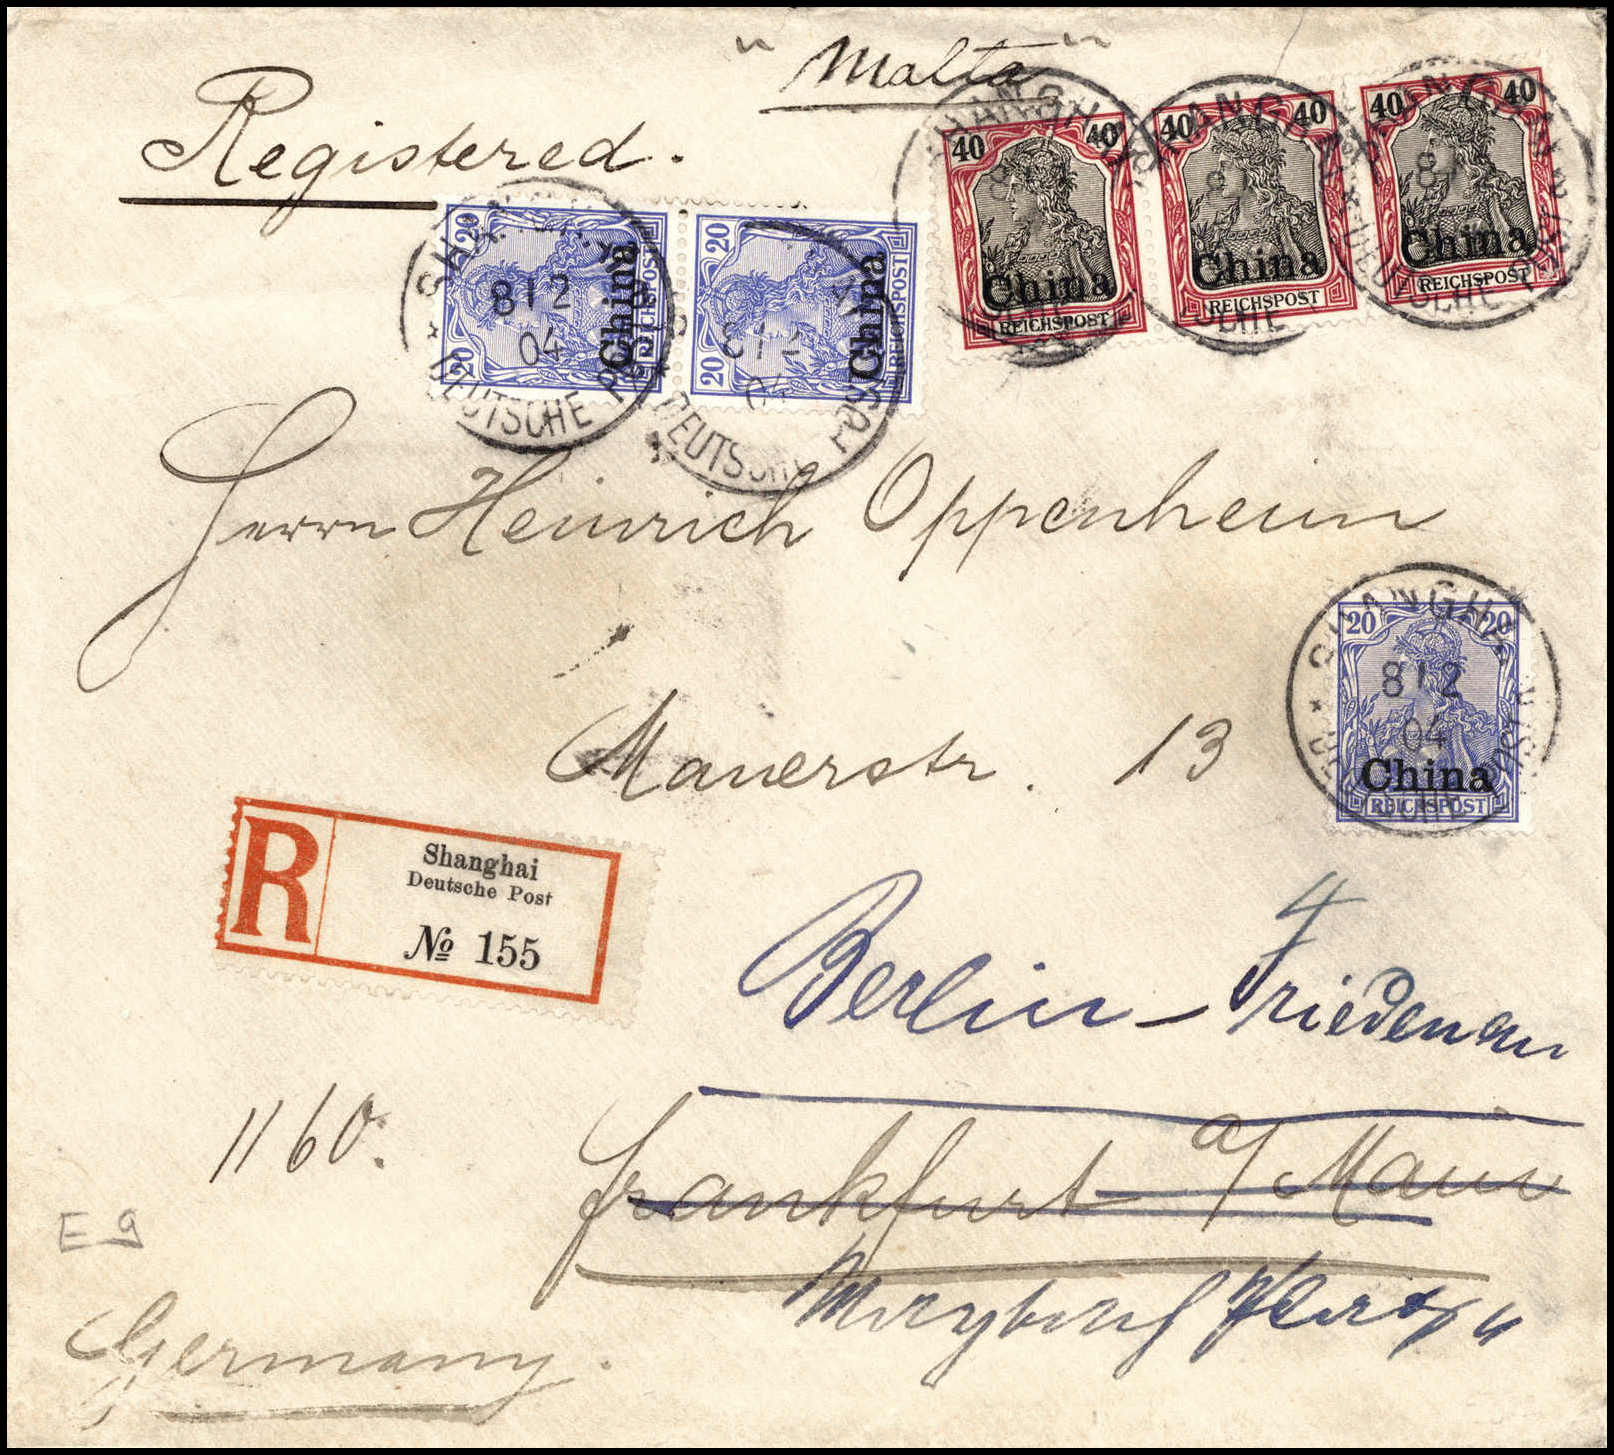 " Malta "
Registered.
20 20 China REICHSPOST
20 20 China REICHSPOST
40 40 China REICHSPOST
40 40 China REICHSPOST
40 40 China REICHSPOST
SHANGHAI
8 12
04
* DEUTSCHE POST *
8 12
04
* DEUTSCHE POST
Herrn Heinrich Oppenheim
Mauerstr. 13
20 20 China REICHSPOST
SHANGHAI
8 12
04
R Shanghai
Deutsche Post
№ 155
4
Berlin - Friedenau
Frankfurt a/Main
1160.
E 9
Germany.